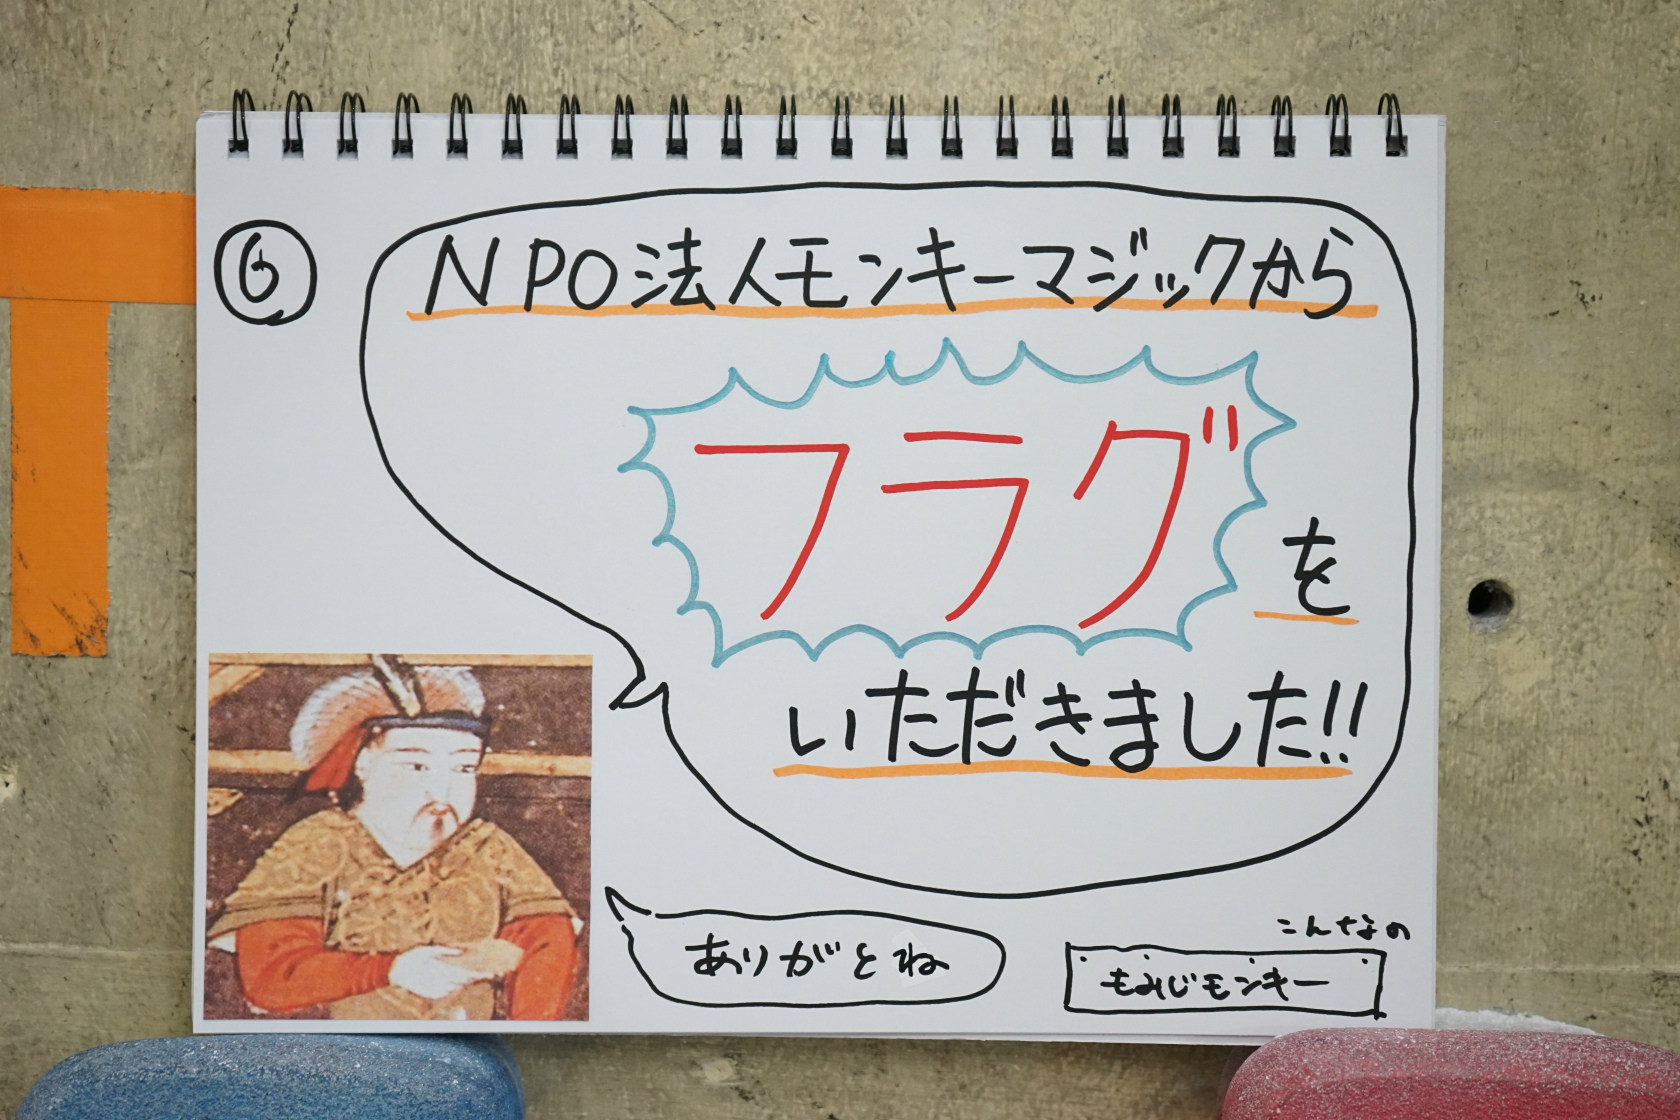 ⑥
NPO法人モンキーマジックから
フラグ
を
いただきました!!
ありがとね
こんなの
もみじモンキー